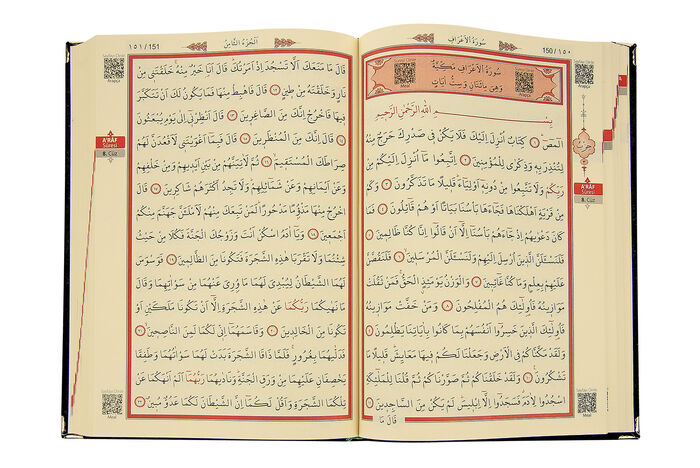 150 / ١٥٠
سُورَةُ الْاَعْرَافِ
سُورَةُ الْاَعْرَافِ مَكِّيَّةٌ
وَهِيَ مِائَتَانِ وَسِتُّ اٰيَاتٍ
Meal
Arapça
بِسْمِ اللّٰهِ الرَّحْمٰنِ الرَّحِيمِ
الٓمٓصٓ ١ كِتَابٌ اُنْزِلَ اِلَيْكَ فَلَا يَكُنْ فِى صَدْرِكَ حَرَجٌ مِنْهُ
لِتُنْذِرَ بِهِ وَذِكْرٰى لِلْمُؤْمِنِينَ ٢ اِتَّبِعُوا مَٓا اُنْزِلَ اِلَيْكُمْ مِنْ
رَبِّكُمْ وَلَا تَتَّبِعُوا مِنْ دُونِهِٓ اَوْلِيَٓاءَ قَلِيلًا مَا تَذَكَّرُونَ ٣ وَكَمْ
مِنْ قَرْيَةٍ اَهْلَكْنَاهَا فَجَٓاءَهَا بَأْسُنَا بَيَاتًا اَوْ هُمْ قَٓائِلُونَ ٤ فَمَا
كَانَ دَعْوٰيهُمْ اِذْ جَٓاءَهُمْ بَأْسُنَٓا اِلَّٓا اَنْ قَالُٓوا اِنَّا كُنَّا ظَالِمِينَ ٥
فَلَنَسْـَٔلَنَّ الَّذِينَ اُرْسِلَ اِلَيْهِمْ وَلَنَسْـَٔلَنَّ الْمُرْسَلِينَ ٦ فَلَنَقُصَّنَّ
عَلَيْهِمْ بِعِلْمٍ وَمَا كُنَّا غَٓائِبِينَ ٧ وَالْوَزْنُ يَوْمَئِذٍ الْحَقُّ فَمَنْ ثَقُلَتْ
مَوَازِينُهُ فَاُو۬لٰٓئِكَ هُمُ الْمُفْلِحُونَ ٨ وَمَنْ خَفَّتْ مَوَازِينُهُ
فَاُو۬لٰٓئِكَ الَّذِينَ خَسِرُٓوا اَنْفُسَهُمْ بِمَا كَانُوا بِاٰيَاتِنَا يَظْلِمُونَ ٩
وَلَقَدْ مَكَّنَّاكُمْ فِى الْاَرْضِ وَجَعَلْنَا لَكُمْ فِيهَا مَعَايِشَ قَلِيلًا مَا
تَشْكُرُونَ ١٠ وَلَقَدْ خَلَقْنَاكُمْ ثُمَّ صَوَّرْنَاكُمْ ثُمَّ قُلْنَا لِلْمَلٰٓئِكَةِ
اسْجُدُوا لِاٰدَمَ فَسَجَدُٓوا اِلَّٓا اِبْلِيسَ لَمْ يَكُنْ مِنَ السَّاجِدِينَ ١١
قَالَ مَا
A'RÂF
Sûresi
8. Cüz
اَلْجُزْءُ الثَّامِنُ
151 / ١٥١
قَالَ مَا مَنَعَكَ اَلَّا تَسْجُدَ اِذْ اَمَرْتُكَ قَالَ اَنَا۬ خَيْرٌ مِنْهُ خَلَقْتَنِى مِنْ
نَارٍ وَخَلَقْتَهُ مِنْ طِينٍ ١٢ قَالَ فَاهْبِطْ مِنْهَا فَمَا يَكُونُ لَكَ اَنْ تَتَكَبَّرَ
فِيهَا فَاخْرُجْ اِنَّكَ مِنَ الصَّاغِرِينَ ١٣ قَالَ اَنْظِرْنِٓى اِلٰى يَوْمِ يُبْعَثُونَ
١٤ قَالَ اِنَّكَ مِنَ الْمُنْظَرِينَ ١٥ قَالَ فَبِمَٓا اَغْوَيْتَنِى لَاَقْعُدَنَّ لَهُمْ
صِرَاطَكَ الْمُسْتَقِيمَ ١٦ ثُمَّ لَاٰتِيَنَّهُمْ مِنْ بَيْنِ اَيْدِيهِمْ وَمِنْ خَلْفِهِمْ
وَعَنْ اَيْمَانِهِمْ وَعَنْ شَمَٓائِلِهِمْ وَلَا تَجِدُ اَكْثَرَهُمْ شَاكِرِينَ ١٧ قَالَ
اخْرُجْ مِنْهَا مَذْؤُ۫مًا مَدْحُورًا لَمَنْ تَبِعَكَ مِنْهُمْ لَاَمْلَـَٔنَّ جَهَنَّمَ مِنْكُمْ
اَجْمَعِينَ ١٨ وَيَٓا اٰدَمُ اسْكُنْ اَنْتَ وَزَوْجُكَ الْجَنَّةَ فَكُلَا مِنْ حَيْثُ
شِئْتُمَا وَلَا تَقْرَبَا هٰذِهِ الشَّجَرَةَ فَتَكُونَا مِنَ الظَّالِمِينَ ١٩ فَوَسْوَسَ
لَهُمَا الشَّيْطَانُ لِيُبْدِىَ لَهُمَا مَا وُ۫رِىَ عَنْهُمَا مِنْ سَوْاٰتِهِمَا وَقَالَ
مَا نَهٰيكُمَا رَبُّكُمَا عَنْ هٰذِهِ الشَّجَرَةِ اِلَّٓا اَنْ تَكُونَا مَلَكَيْنِ اَوْ
تَكُونَا مِنَ الْخَالِدِينَ ٢٠ وَقَاسَمَهُمَٓا اِنِّى لَكُمَا لَمِنَ النَّاصِحِينَ ٢١
فَدَلّٰيهُمَا بِغُرُورٍ فَلَمَّا ذَاقَا الشَّجَرَةَ بَدَتْ لَهُمَا سَوْاٰتُهُمَا وَطَفِقَا
يَخْصِفَانِ عَلَيْهِمَا مِنْ وَرَقِ الْجَنَّةِ وَنَادٰيهُمَا رَبُّهُمَٓا اَلَمْ اَنْهَكُمَا عَنْ
تِلْكُمَا الشَّجَرَةِ وَاَقُلْ لَكُمَٓا اِنَّ الشَّيْطَانَ لَكُمَا عَدُوٌّ مُبِينٌ ٢٢
Arapça
A'RÂF
Sûresi
8. Cüz
Meal